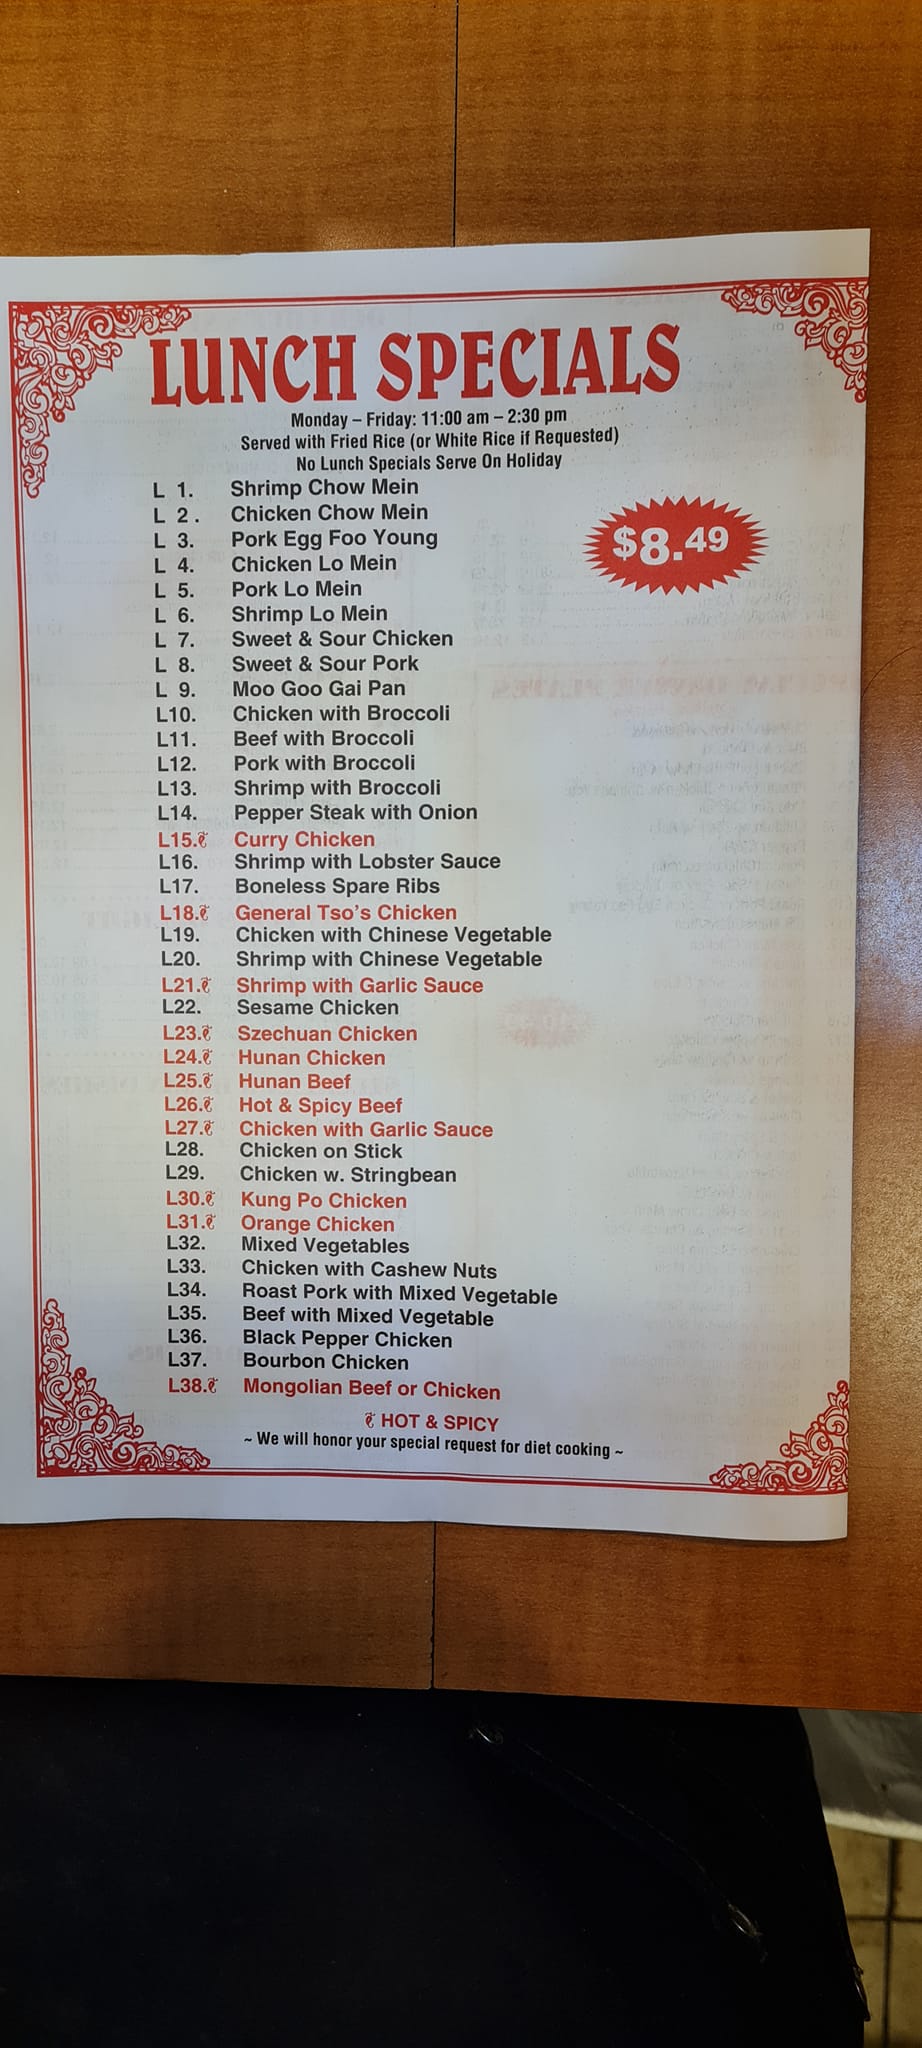 LUNCH SPECIALS
Monday – Friday: 11:00 am – 2:30 pm
Served with Fried Rice (or White Rice if Requested)
No Lunch Specials Serve On Holiday
$8.49
L 1. Shrimp Chow Mein
L 2. Chicken Chow Mein
L 3. Pork Egg Foo Young
L 4. Chicken Lo Mein
L 5. Pork Lo Mein
L 6. Shrimp Lo Mein
L 7. Sweet & Sour Chicken
L 8. Sweet & Sour Pork
L 9. Moo Goo Gai Pan
L10. Chicken with Broccoli
L11. Beef with Broccoli
L12. Pork with Broccoli
L13. Shrimp with Broccoli
L14. Pepper Steak with Onion
L15. Curry Chicken
L16. Shrimp with Lobster Sauce
L17. Boneless Spare Ribs
L18. General Tso's Chicken
L19. Chicken with Chinese Vegetable
L20. Shrimp with Chinese Vegetable
L21. Shrimp with Garlic Sauce
L22. Sesame Chicken
L23. Szechuan Chicken
L24. Hunan Chicken
L25. Hunan Beef
L26. Hot & Spicy Beef
L27. Chicken with Garlic Sauce
L28. Chicken on Stick
L29. Chicken w. Stringbean
L30. Kung Po Chicken
L31. Orange Chicken
L32. Mixed Vegetables
L33. Chicken with Cashew Nuts
L34. Roast Pork with Mixed Vegetable
L35. Beef with Mixed Vegetable
L36. Black Pepper Chicken
L37. Bourbon Chicken
L38. Mongolian Beef or Chicken
HOT & SPICY
~ We will honor your special request for diet cooking ~